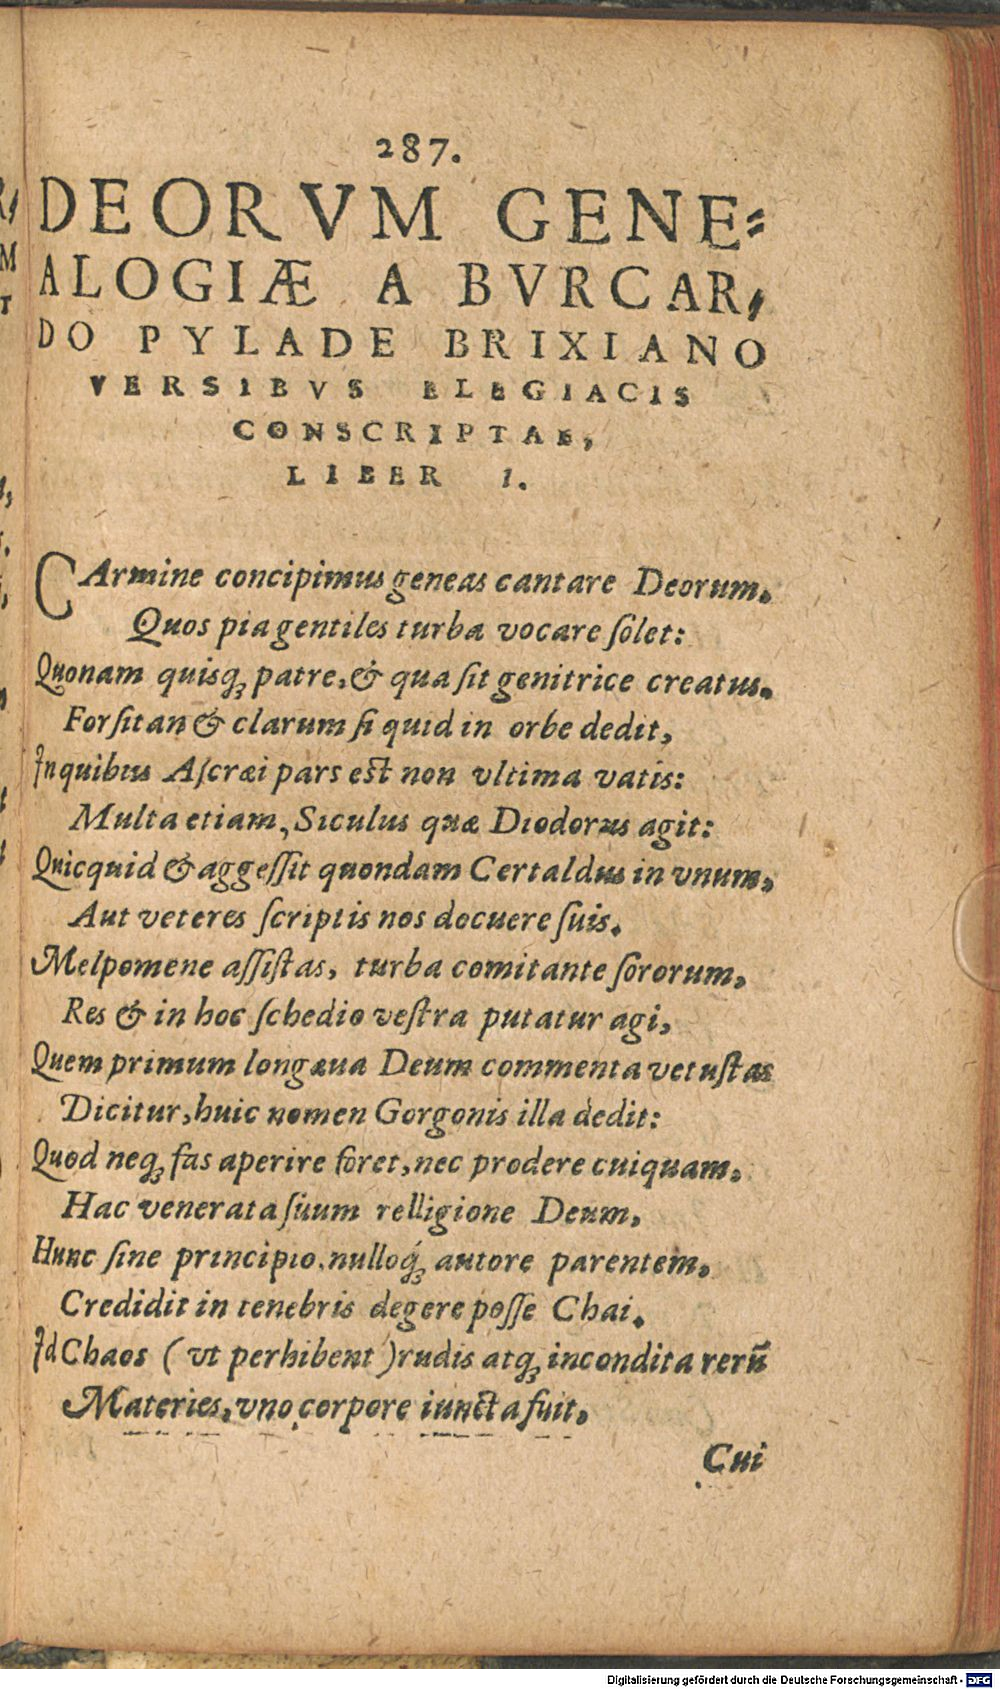 287.
DEORVM GENE-
ALOGIÆ A BVRCAR,
DO PYLADE BRIXIANO
VERSIBVS ELEGIACIS
CONSCRIPTAE,
LIBER I.
CArmine concipimus geneas cantare Deorum,
Quos pia gentiles turba vocare ſolet:
Quonam quisq; patre, & qua ſit genitrice creatus,
Forſitan & clarum ſi quid in orbe dedit,
In quibus Aſcræi pars est non vltima vatis:
Multa etiam, Siculus quæ Diodorus agit:
Quicquid & aggeſſit quondam Certaldus in vnum,
Aut veteres ſcriptis nos docuere ſuis.
Melpomene aſſiſtas, turba comitante ſororum,
Res & in hoc ſchedio veſtra putatur agi,
Quem primum longæua Deum commenta vetuſtas
Dicitur, huic nomen Gorgonis illa dedit:
Quod neq; fas aperire foret, nec prodere cuiquam,
Hac venerata ſuum relligione Deum,
Hunc ſine principio, nulloq́; autore parentem,
Credidit in tenebris degere poſſe Chai.
Id Chaos ( vt perhibent ) rudis atq; incondita rerū
Materies, vno corpore iuncta fuit,
Cui
Digitalisierung gefördert durch die Deutsche Forschungsgemeinschaft - DFG